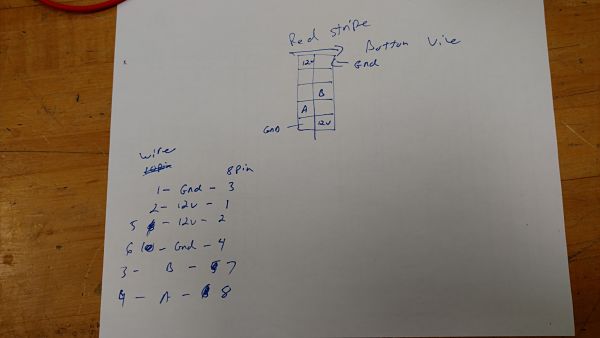 Red Stripe
Button Vire
12V
Gnd
B
A
GND
12V
Wire
8 Pin
1 - Gnd - 3
2 - 12V - 1
5 - 12V - 2
6 - Gnd - 4
3 - B - 7
4 - A - 8